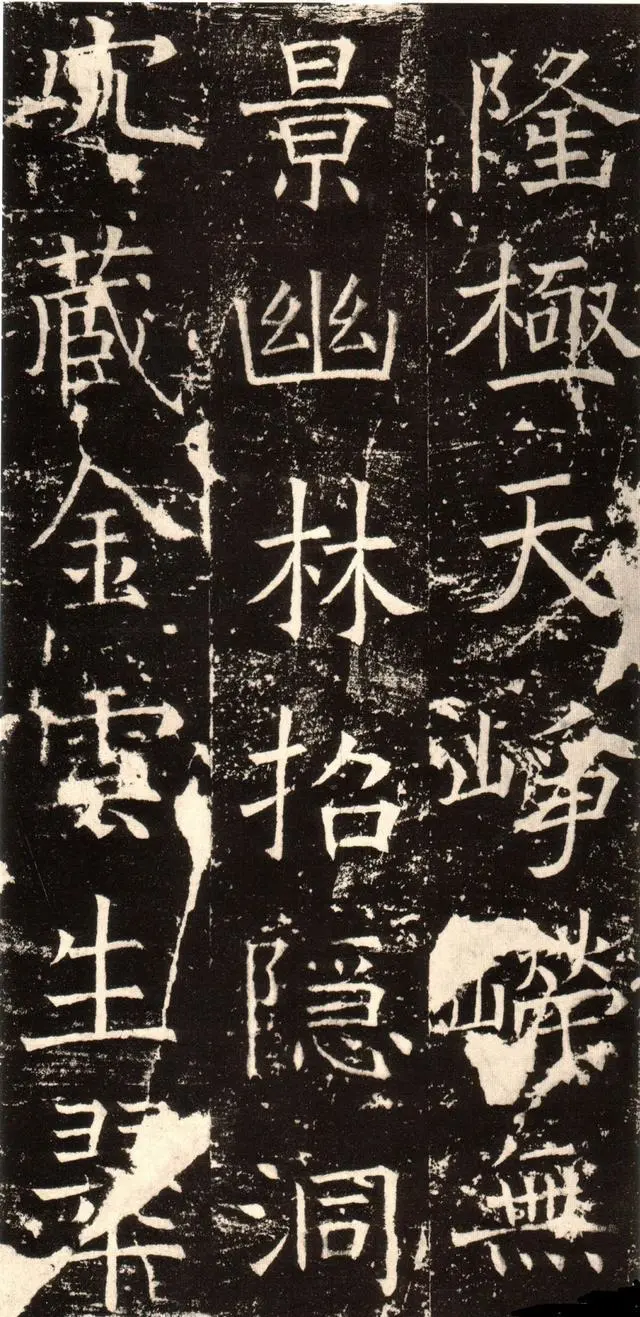 隆極天崢嶸無
景幽林招隐洞
穴藏金雲生翠